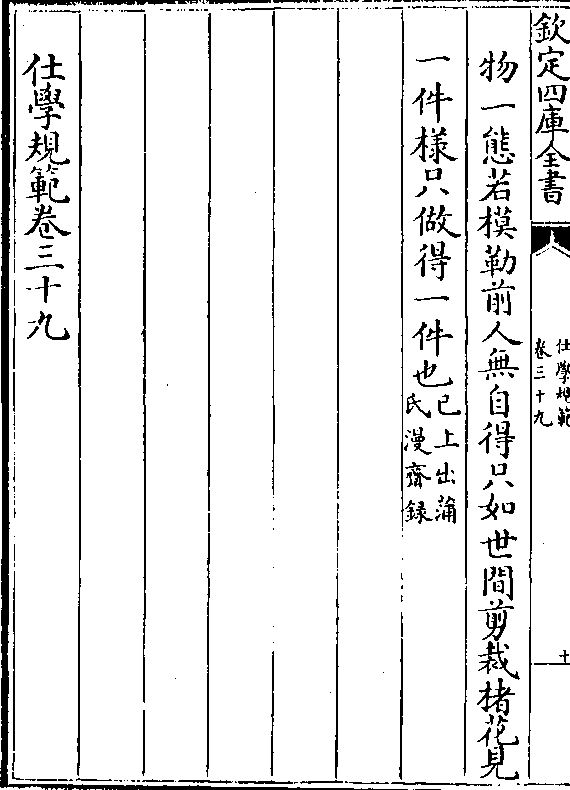 欽定四庫全書
仕學規範
卷三十九
十
物一態若模勒前人無自得只如世間剪裁楮花見
一件様只做得一件也已上出蒲
氏漫齋録
仕學規範卷三十九